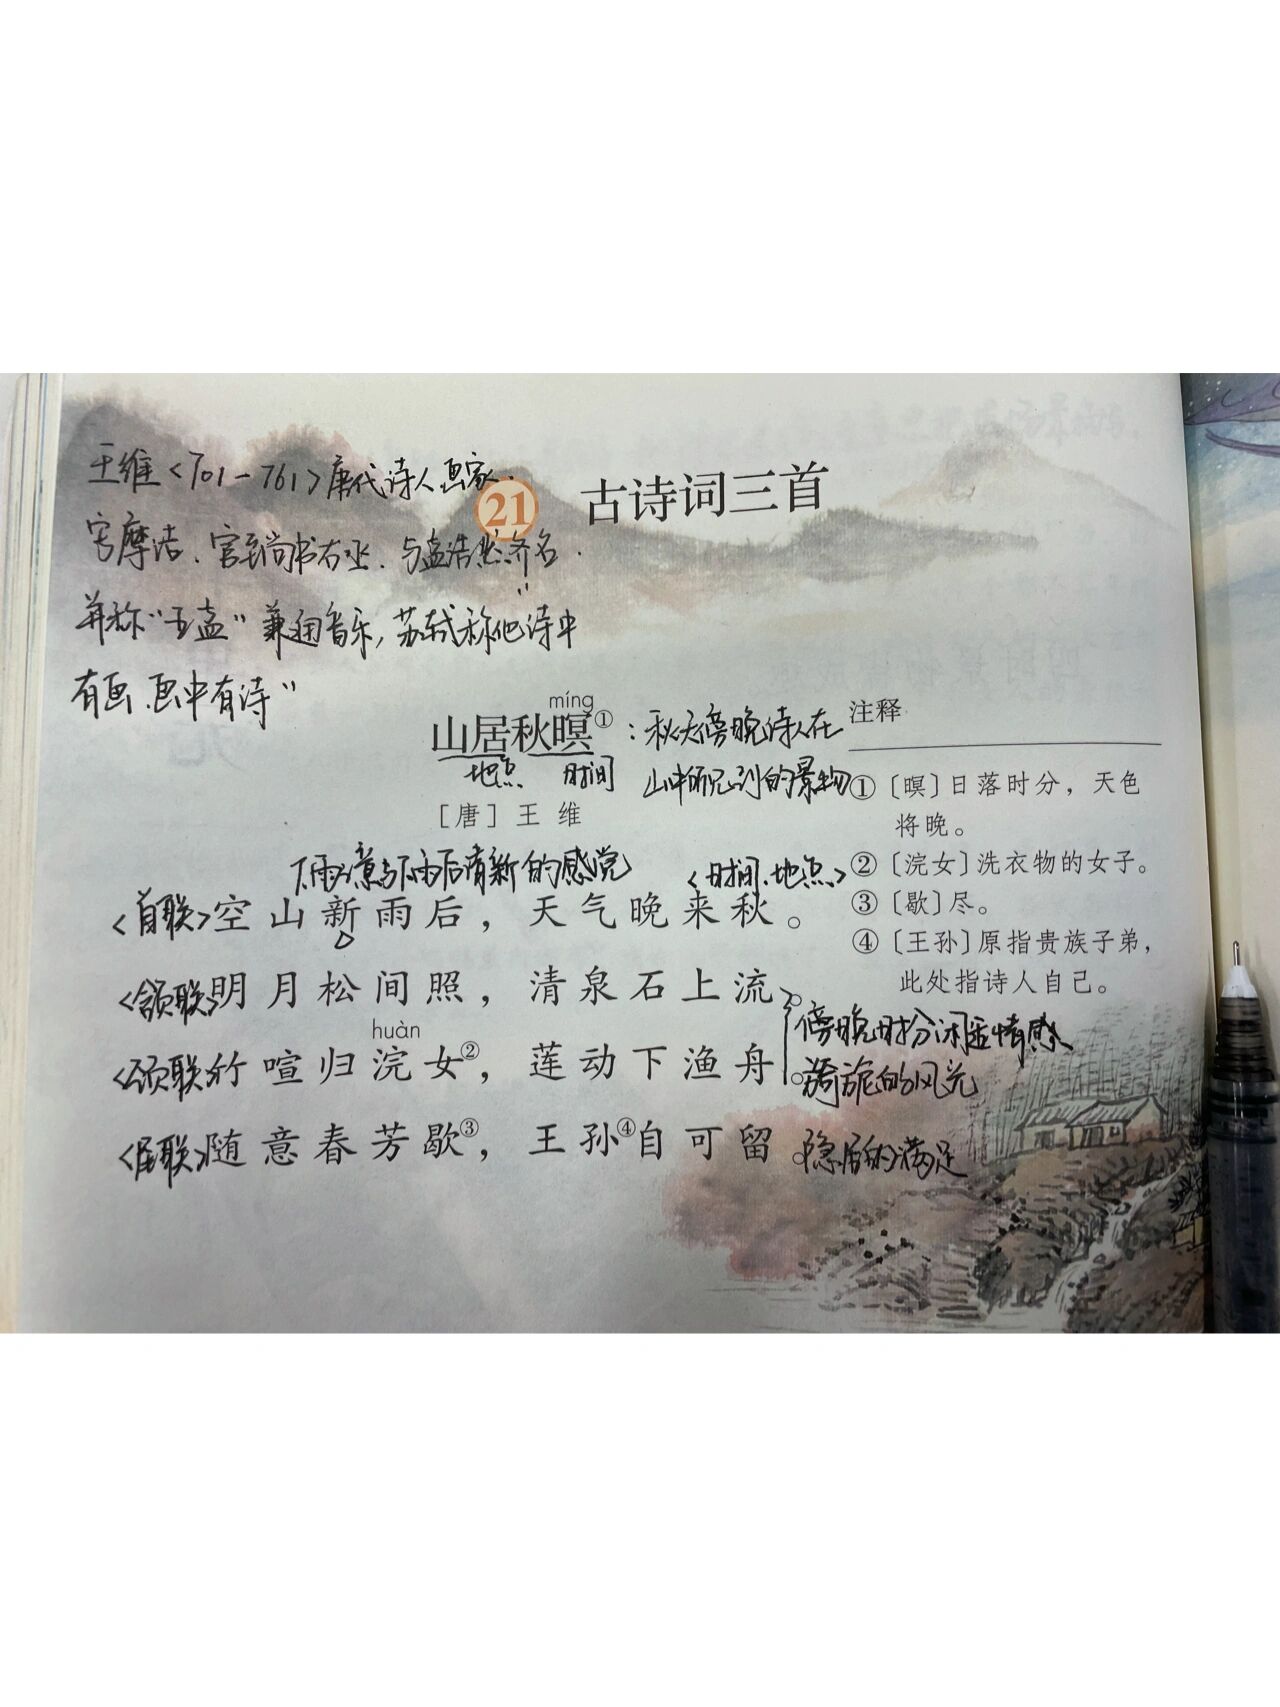 王维<701-761>唐代诗人画家.
21 古诗词三首
字摩诘、官到尚书右丞、与孟浩然齐名.
并称“王孟”兼通音乐,苏轼称他“诗中
有画、画中有诗”
míng
山居秋暝①:秋天傍晚诗人在
地点 时间 山中所见到的景物
[唐]王维
注释
①〔暝〕日落时分，天色
将晚。
②〔浣女〕洗衣物的女子。
③〔歇〕尽。
④〔王孙〕原指贵族子弟，
此处指诗人自己。
下雨后清新的感觉 <时间、地点>
<首联>空山新雨后，天气晚来秋。
<颔联>明月松间照，清泉石上流。
huàn
<颈联>竹喧归浣女②，莲动下渔舟。
傍晚时分闲适情感
旖旎的风光
<尾联>随意春芳歇③，王孙④自可留。隐居的满足